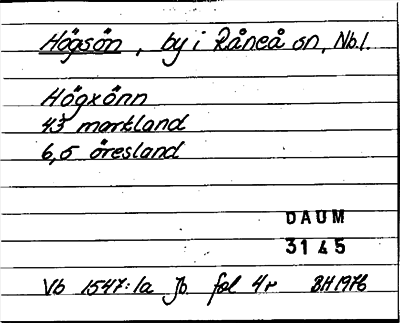 Högsön, by i Råneå sn, Nb.l.
Högxönn
43 markland
6,5 öresland
DAUM
3145
Vb 1547:1a Jb fol 4r BH 1976